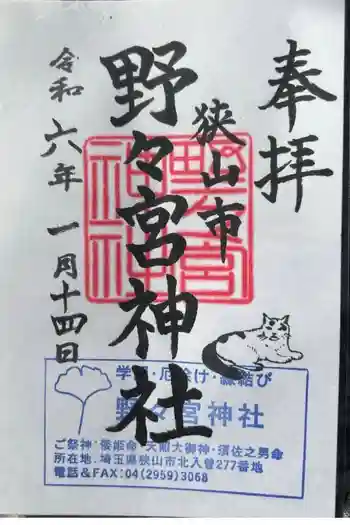 奉拝
狭山市
野々宮神社
令和六年一月十四日
野々宮
神社
学問・厄除け・縁結び
野々宮神社
ご祭神・倭姫命・天照大御神・須佐之男命
所在地・埼玉県狭山市北入曽277番地
電話&FAX:04(2959)3068